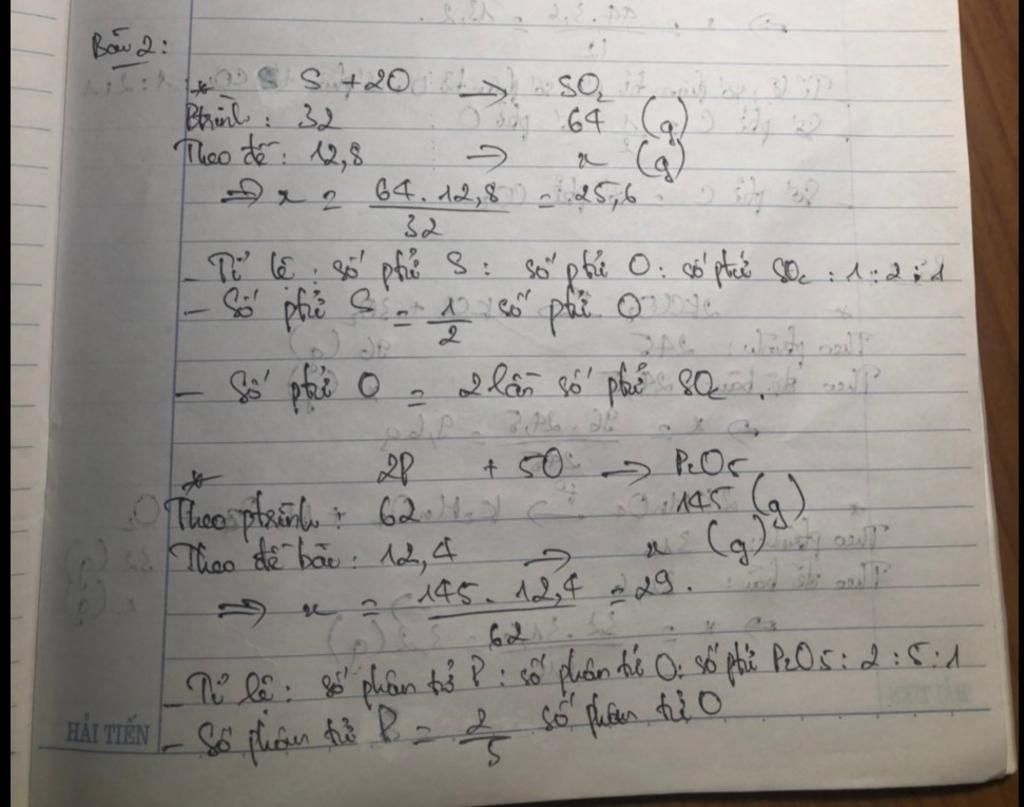 Bài 2:
* S + 2O → SO2
Ptrình: 32 64 (g)
Theo đề: 12,8 → x (g)
⇒ x = 64.12,8 / 32 = 25,6
- Tỉ lệ: số ptử S: số ptử O: số ptử SO2: 1:2:1
- Số ptử S = 1/2 số ptử O
- Số ptử O = 2 lần số ptử SO2.
* 2P + 5O → P2O5
Theo ptrình: 62 145 (g)
Theo đề bài: 12,4 → x (g)
⇒ x = 145.12,4 / 62 = 29.
- Tỉ lệ: số phân tử P: số phân tử O: số ptử P2O5: 2:5:1
- Số phân tử P = 2/5 số phân tử O
HẢI TIẾN